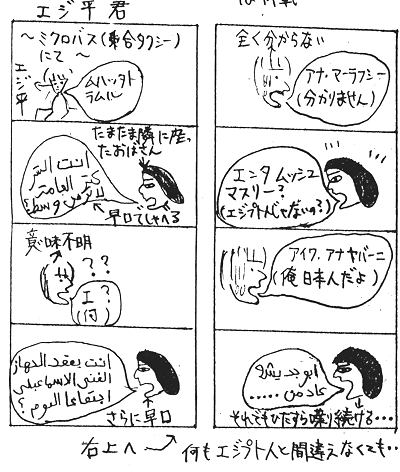 エジ平君
～ミクロバス(乗合タクシー)
にて～
エジ平
ムハッタト
ラムル
たまたま隣に座っ
たおばさん
انت
العامة
早口でしゃべる
意味不明
? ? ?
エ?
(何)
انت بعقد الجهاز
الفنى الاسماعيلى
اجتماعا اليوم؟
さらに早口
右上へ
全く分からない
アナ・マーラフシー
(分かりません)
エンタ ムッシュ
マスリー?
(エジプト人じゃないの?)
アイワ, アナ ヤバーニ
(俺日本人だよ)
عاد من .....
それでもひたすら喋り続ける…
何もエジプト人と間違えなくても…